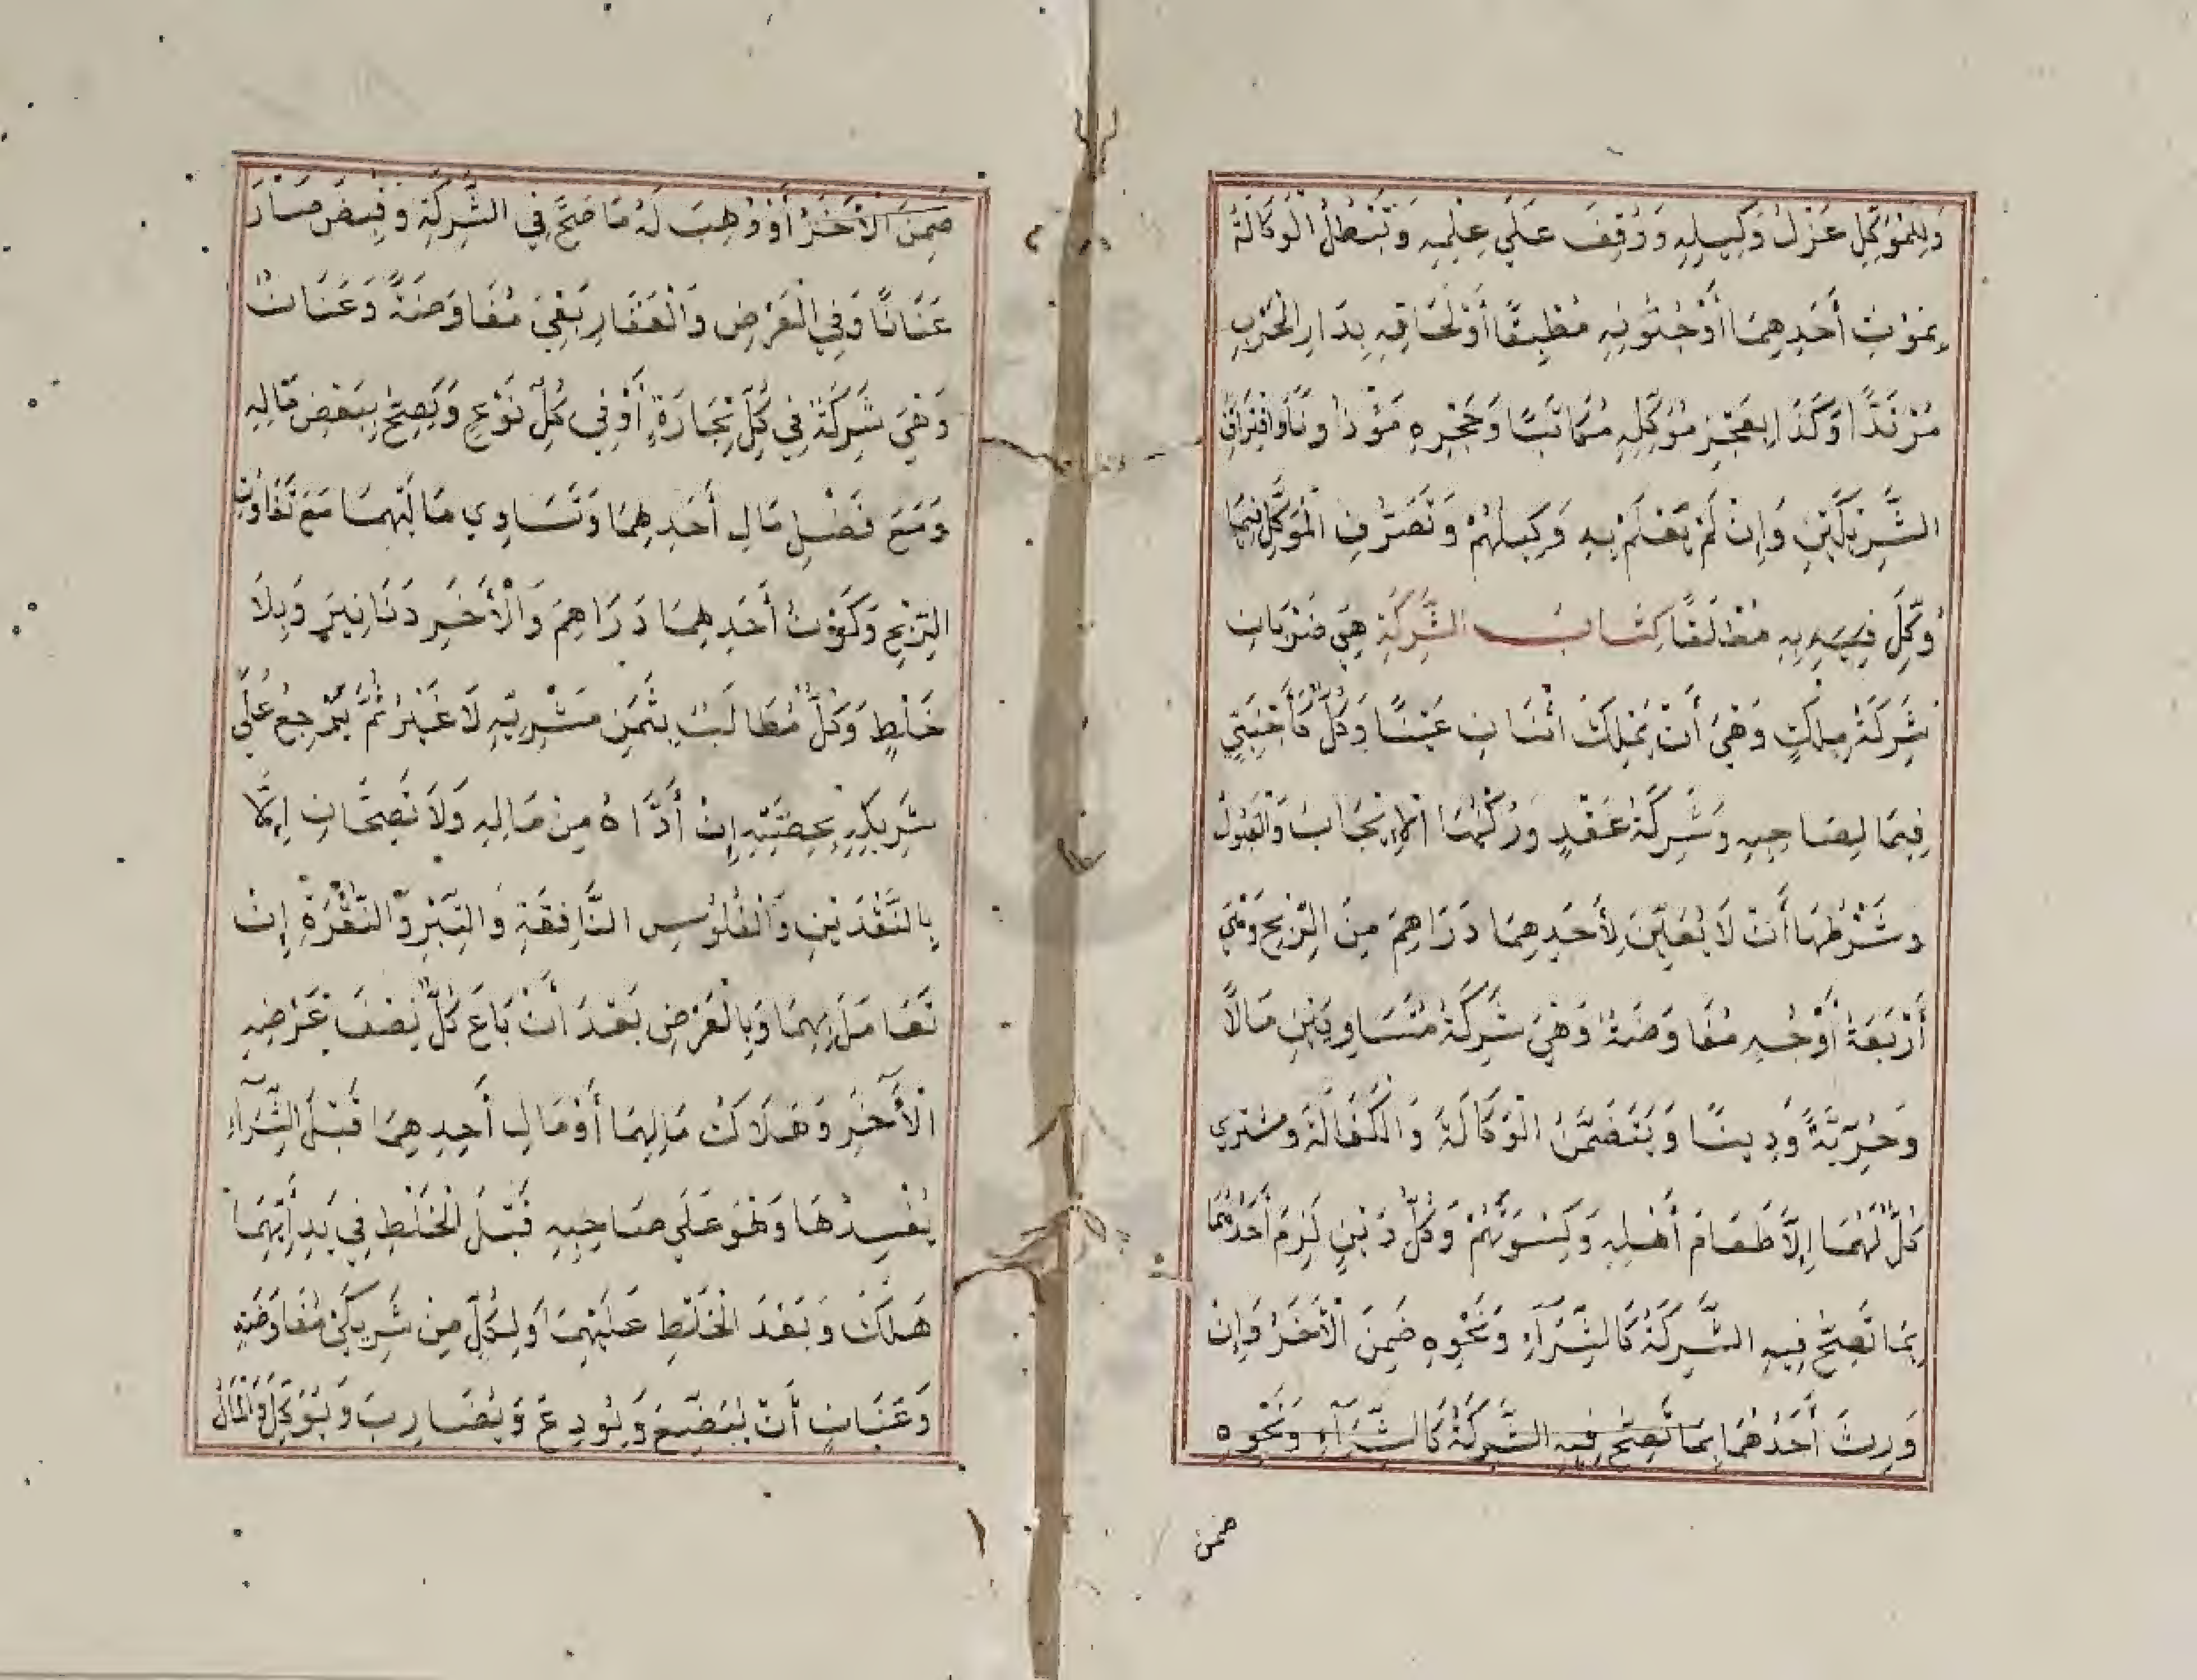 وَلِلْمُوَكِّلِ عَزْلُ وَكِيلِهِ وَوُقِفَ عَلَى عِلْمِهِ وَتَبْطُلُ الْوَكَالَةُ
بِمَوْتِ أَحَدِهِمَا أَوْجُنُونِهِ مُطْبِقًا أَوْلَحَاقِهِ بِدَارِ الْحَرْبِ
مُرْتَدًّا وَكَذَا بِعَجْزِ مُوَكِّلِهِ مُكَاتَبًا وَحَجْرِهِ مَوْذُونًا وَافْتِرَاقِ
الشَّرِيكَيْنِ وَإِنْ لَمْ يَعْلَمْ بِهِ وَكِيلُهُمْ وَتَصَرُّفِ الْمُوَكِّلِ فِيمَا
وُكِّلَ فِيهِ بِهِ مُطْلَقًا كِتَابُ الشَّرِكَةِ هِيَ ضَرْبَانِ
شَرِكَةُ مِلْكٍ وَهِيَ أَنْ يَمْلِكَ اثْنَانِ عَيْنًا وَكُلٌّ كَأَجْنَبِيٍّ
فِيمَا لِصَاحِبِهِ وَشَرِكَةُ عَقْدٍ وَرُكْنُهَا الْإِيجَابُ وَالْقَبُولُ
وَشَرْطُهَا أَنْ لَا يُعَيَّنَ لِأَحَدِهِمَا دَرَاهِمَ مِنَ الرِّبْحِ وَهِيَ
أَرْبَعَةُ أَوْجُهٍ مُفَاوَضَةٌ وَهِيَ شَرِكَةُ مُتَسَاوِيَيْنِ مَالًا
وَحُرِّيَّةً وَدِينًا وَيَتَضَمَّنُ الْوَكَالَةَ وَالْكَفَالَةَ وَمشترى
كُلٍّ لَهُمَا إِلَّا طَعَامَ أَهْلِهِ وَكِسْوَتَهُمْ وَكُلُّ دَيْنٍ لَزِمَ أَحَدَهُمَا
بِمَا تَصِحُّ فِيهِ الشَّرِكَةُ كَالشِّرَآءِ وَنَحْوِهِ ضَمِنَ الْأَخَرُ وَإِنْ
وَرِثَ أَحَدُهُمَا بِمَا تَصِحُّ فِيهِ الشَّرِكَةُ كَالشِّرَآءِ وَنَحْوِهِ
ضمن
ضَمِنَ الْأَخَرُ أَوْ وُهِبَ لَهُ مَا صَحَّ فِي الشَّرِكَةِ وَقُبِضَ صَارَ
عَنَانًا وَفِي الْعَرْضِ وَالْعَقَارِ بَقِيَ مُفَاوَضَةً وَعَنَانٌ
وَهِيَ شَرِكَةٌ فِي كُلِّ تِجَارَةٍ أَوْ فِي كُلِّ نَوْعٍ وَيَصِحُّ بِبَعْضِ مَالِهِ
وَمَعَ فَضْلِ مَالِ أَحَدِهِمَا وَتَسَاوِي مَالَيْهِمَا مَعَ تَفَاوُتِ
الرِّبْحِ وَكَوْنِ أَحَدِهِمَا دَرَاهِمَ وَالْأَخَرِ دَنَانِيرَ وَبِلَا
خَلْطٍ وَكُلٌّ مُطَالَبٌ بِثَمَنِ مَشْرِيِّهِ لَا غَيْرُ ثُمَّ يَرْجِعُ عَلَى
شَرِيكِهِ بِحِصَّتِهِ إِنْ أَدَّاهُ مِنْ مَالِهِ وَلَا تَصِحَّانِ إِلَّا
بِالنَّقْدَيْنِ وَالْفُلُوسِ النَّافِقَةِ وَالتِّبْرِ وَالنُّقْرَةِ إِنْ
تَعَامَلَ بِهِمَا وَبِالْعَرْضِ بَعْدَ أَنْ بَاعَ كُلٌّ نِصْفَ عَرْضِهِ
الْآخَرِ وَهَلَاكُ مَالِهِمَا أَوْمَالِ أَحَدِهِمَا قَبْلَ الشِّرَآءِ
يُفْسِدُهَا وَهُوَ عَلَى صَاحِبِهِ قَبْلَ الْخَلْطِ فِي يَدِ أَيِّهِمَا
هَلَكَ وَبَعْدَ الْخَلْطِ عَلَيْهِمَا وَلِكُلٍّ مِنْ شَرِيكَيْ مُفَاوَضَةٍ
وَعَنَانٍ أَنْ يُبْضِعَ وَيُودِعَ وَيُضَارِبَ وَيُوَكِّلَ وَالْمَالُ